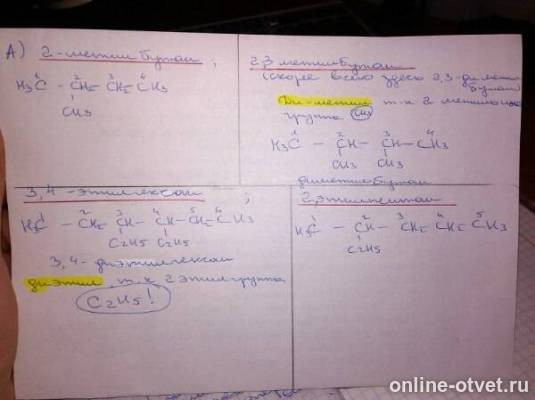 А) 2-метил бутан ;
H3C¹ – CH2² – CH2³ – CH3⁴
CH3
2,3 метилбутан
(скорее всего здесь 2,3-диметил
бутан)
Ди-метил т.к 2 метильные
группа CH3
H3C¹ – CH² – CH³ – CH3⁴
CH3 CH3
диметилбутан
3,4 -этилгексан ;
H3C¹ – CH2² – CH³ – CH⁴ – CH2⁵ – CH3⁶
C2H5 C2H5
3,4- диэтилгексан
диэтил, т.к 2 этилгруппа
C2H5!
2 этилпентан
H3C¹ – CH² – CH2³ – CH2⁴ – CH3⁵
C2H5
online-otvet.ru